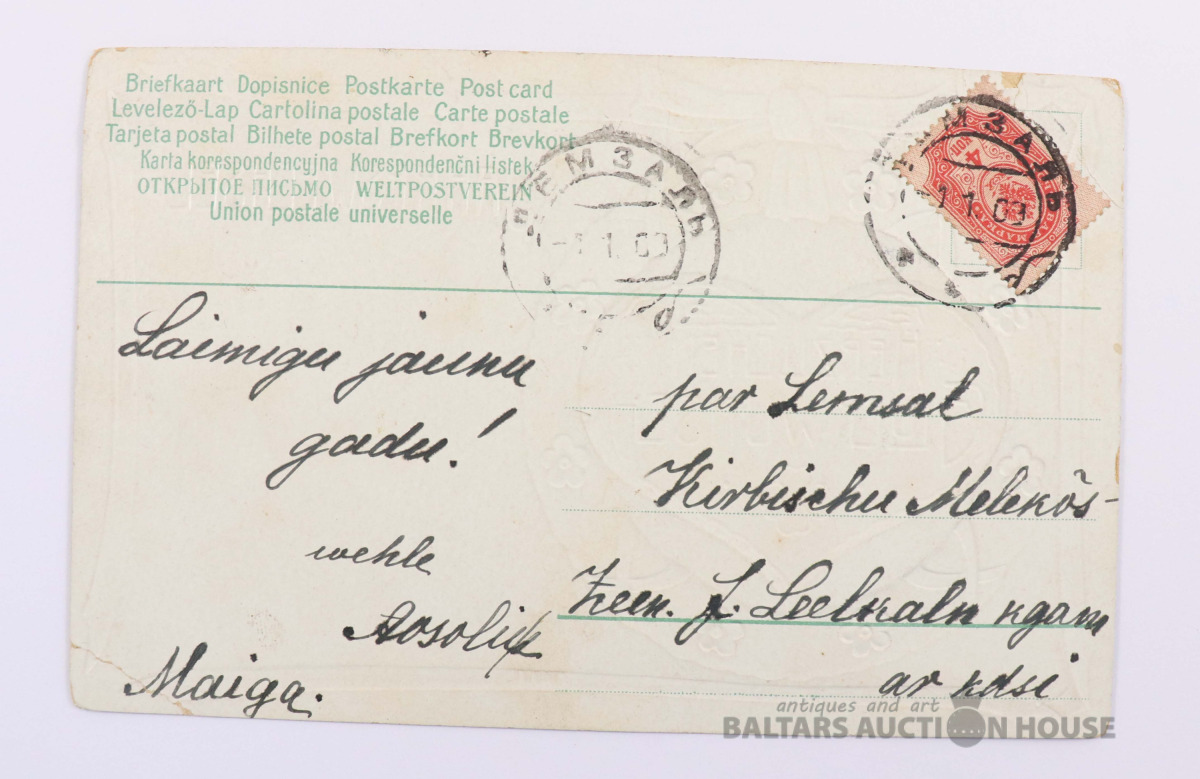 Briefkaart Dopisnice Postkarte Post card
Levelező-Lap Cartolina postale Carte postale
Tarjeta postal Bilhete postal Brefkort Brevkort
Karta korespondencyjna Korespondenční listek
ОТКРЫТОЕ ПИСЬМО WELTPOSTVEREIN
Union postale universelle
ЛЕМЗАЛЬ
-1.1.09
ЛЕМЗАЛЬ
1.1.09
4 КОП
МАРКА
Laimigu jaunu
gadu!
wehle
Maiga.
par Lemsal
Kirbischu Melekōs-
Zeen. J. Leelkaln kgam
ar kdsi
antiques and art
BALTARS AUCTION HOUSE